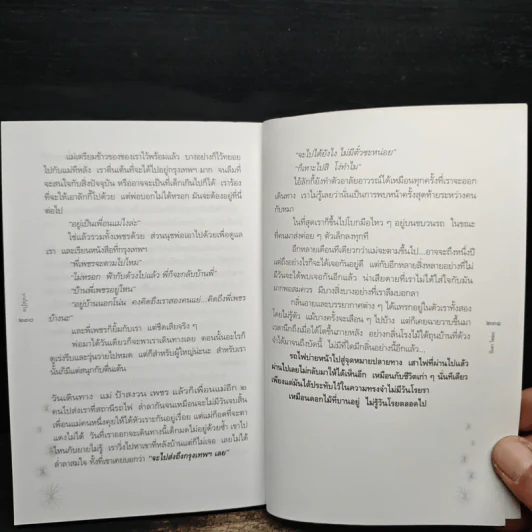 แม่เตรียมข้าวของของเราไว้พร้อมแล้ว บางอย่างก็ไว้ทยอย
ไปกับแม่ทีหลัง เราตื่นเต้นที่จะได้ไปอยู่กรุงเทพฯ มาก จนลืมที่
จะสนใจกับสิ่งปัจจุบัน หรืออาจจะเป็นที่เด็กเกินไปก็ได้ เราร้อง
ที่จะให้เอาลักกี้ไปด้วย แต่พ่อบอกไม่ได้หรอก มันจะต้องอยู่ที่นี่
ต่อไป
"อยู่เป็นเพื่อนแม่ไงล่ะ"
ใช่แล้วรวมทั้งเพชรด้วย ส่วนนุชพ่อเอาไปด้วยเพื่อดูแล
เรา และเรียนหนังสือที่กรุงเทพฯ
"พี่เพชรจะตามไปไหม"
"ไม่หรอก พี่กับด้วงไปแล้ว พี่ก็จะกลับบ้านพี่"
"บ้านพี่เพชรอยู่ไหน"
"อยู่บ้านนอกโน่น คงคิดถึงเราสองคนแย่...คิดถึงพี่เพชร
บ้างนะ"
และพี่เพชรก็ยิ้มกับเรา แต่ซีดเสียจริง ๆ
พ่อมาได้วันเดียวก็จะพาเราเดินทางเลย ตอนนั้นอะไรก็
ดูเร่งรีบและวุ่นวายไปหมด แต่ก็สำหรับผู้ใหญ่น่ะนะ สำหรับเรา
นั้นก็มีแต่สนุกกับตื่นเต้น
วันเดินทาง แม่ ป้าสงวน เพชร แล้วก็เพื่อนแม่อีก ๒
คนไปส่งเราที่สถานีรถไฟ ล่ำลากันจนเหมือนจะไม่มีวันจบสิ้น
เพื่อนแม่คนหนึ่งคุยให้ได้หัวเราะกันอยู่เรื่อย แต่แม่ก็อดที่จะตา
แดงไม่ได้ วันที่เราออกจะเดินทางนี้เด็กมดไม่อยู่ด้วยซ้ำ เราไป
ไหนกับยายไม่รู้ เราวิ่งไปหาเขาที่หลังบ้านแต่ก็ไม่เจอ เลยไม่ได้
ล่ำลาสมใจ ทั้งที่เขาเคยบอกว่า "จะไปส่งถึงกรุงเทพฯ เลย"
"จะไปได้ยังไง ไม่มีตั๋วซะหน่อย"
"ก็เหาะไปสิ โง่ทำไม"
ไอ้ลักกี้ยังทำตัวอาลัยอาวรณ์ได้เหมือนทุกครั้งที่เราจะออก
เดินทาง เราไม่รู้เลยว่านั่นเป็นการพบหน้าครั้งสุดท้ายระหว่างคน
กับหมา
ในที่สุดเราก็ขึ้นไปโบกมือไหว ๆ อยู่บนขบวนรถ ในขณะ
ที่คนมาส่งค่อย ๆ ตัวเล็กลงทุกที
อีกหลายเดือนทีเดียวกว่าแม่จะตามขึ้นไป...อาจจะถึงหนึ่งปี
แต่ถึงอย่างไรก็จะได้เจอกันอยู่ดี แต่กับอีกหลายสิ่งหลายอย่างที่ไม่
มีวันจะได้พบเจอกันอีกแล้ว น่าเสียดายที่เราไม่ได้ใส่ใจกับมัน
มากพอสมควร มีบางสิ่งบางอย่างที่เราลืมบอกลา
กลิ่นอายและบรรยากาศต่าง ๆ ได้แทรกอยู่ในตัวเราทั้งสอง
โดยไม่รู้ตัว แม้บางครั้งจะเลือน ๆ ไปบ้าง แต่ก็เคยฉายวาบขึ้นมา
รถไฟบ่ายหน้าไปสู่จุดหมายปลายทาง เสาไฟที่ผ่านไปแล้ว
ผ่านไปเลยไม่กลับมาให้ได้เห็นอีก เหมือนกับชีวิตเก่า ๆ นั่นทีเดียว
เพียงแต่มันได้ประทับไว้ในความทรงจำไม่มีวันโรยรา
เหมือนดอกไม้ที่บานอยู่ ไม่รู้วันโรยตลอดไป